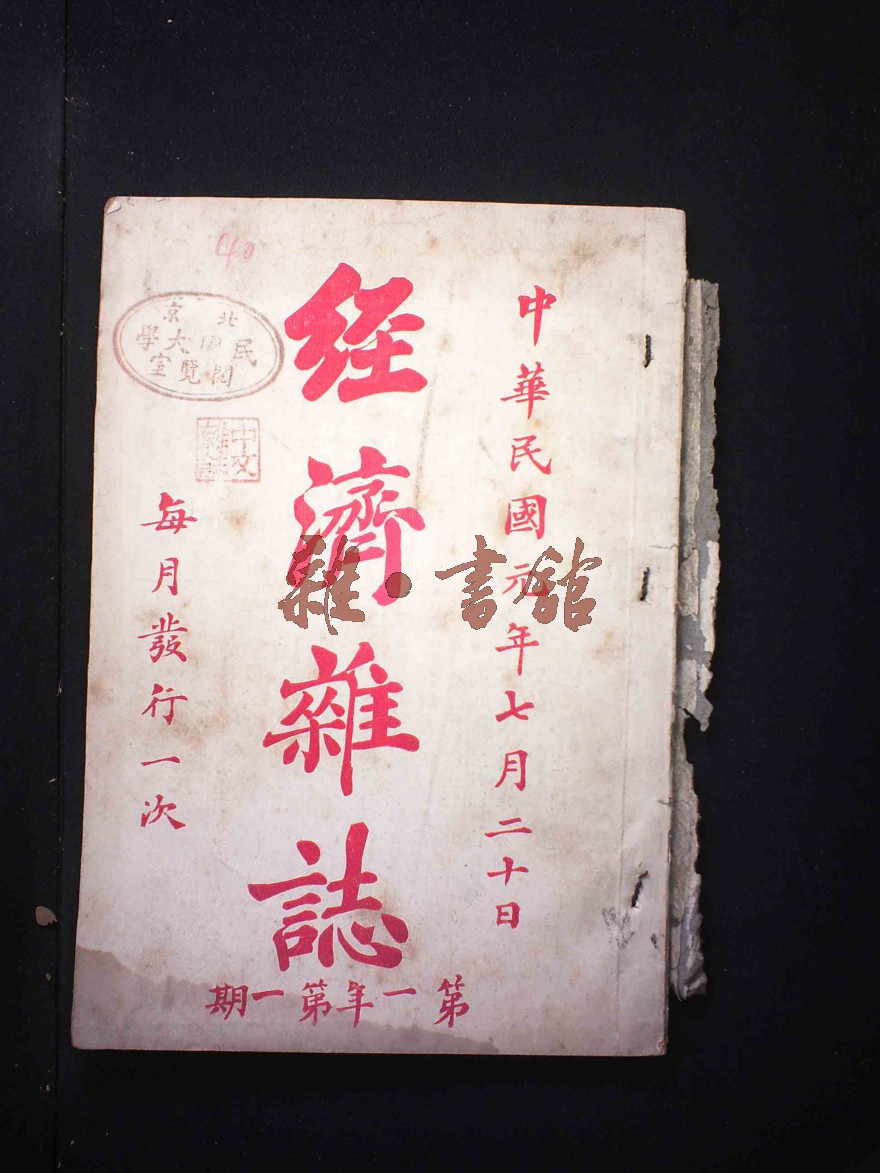 中華民國元年七月二十日
經濟雜誌
每月發行一次
第一年第一期
40
北京
民國大學
閱覽室
中文
雜·書館